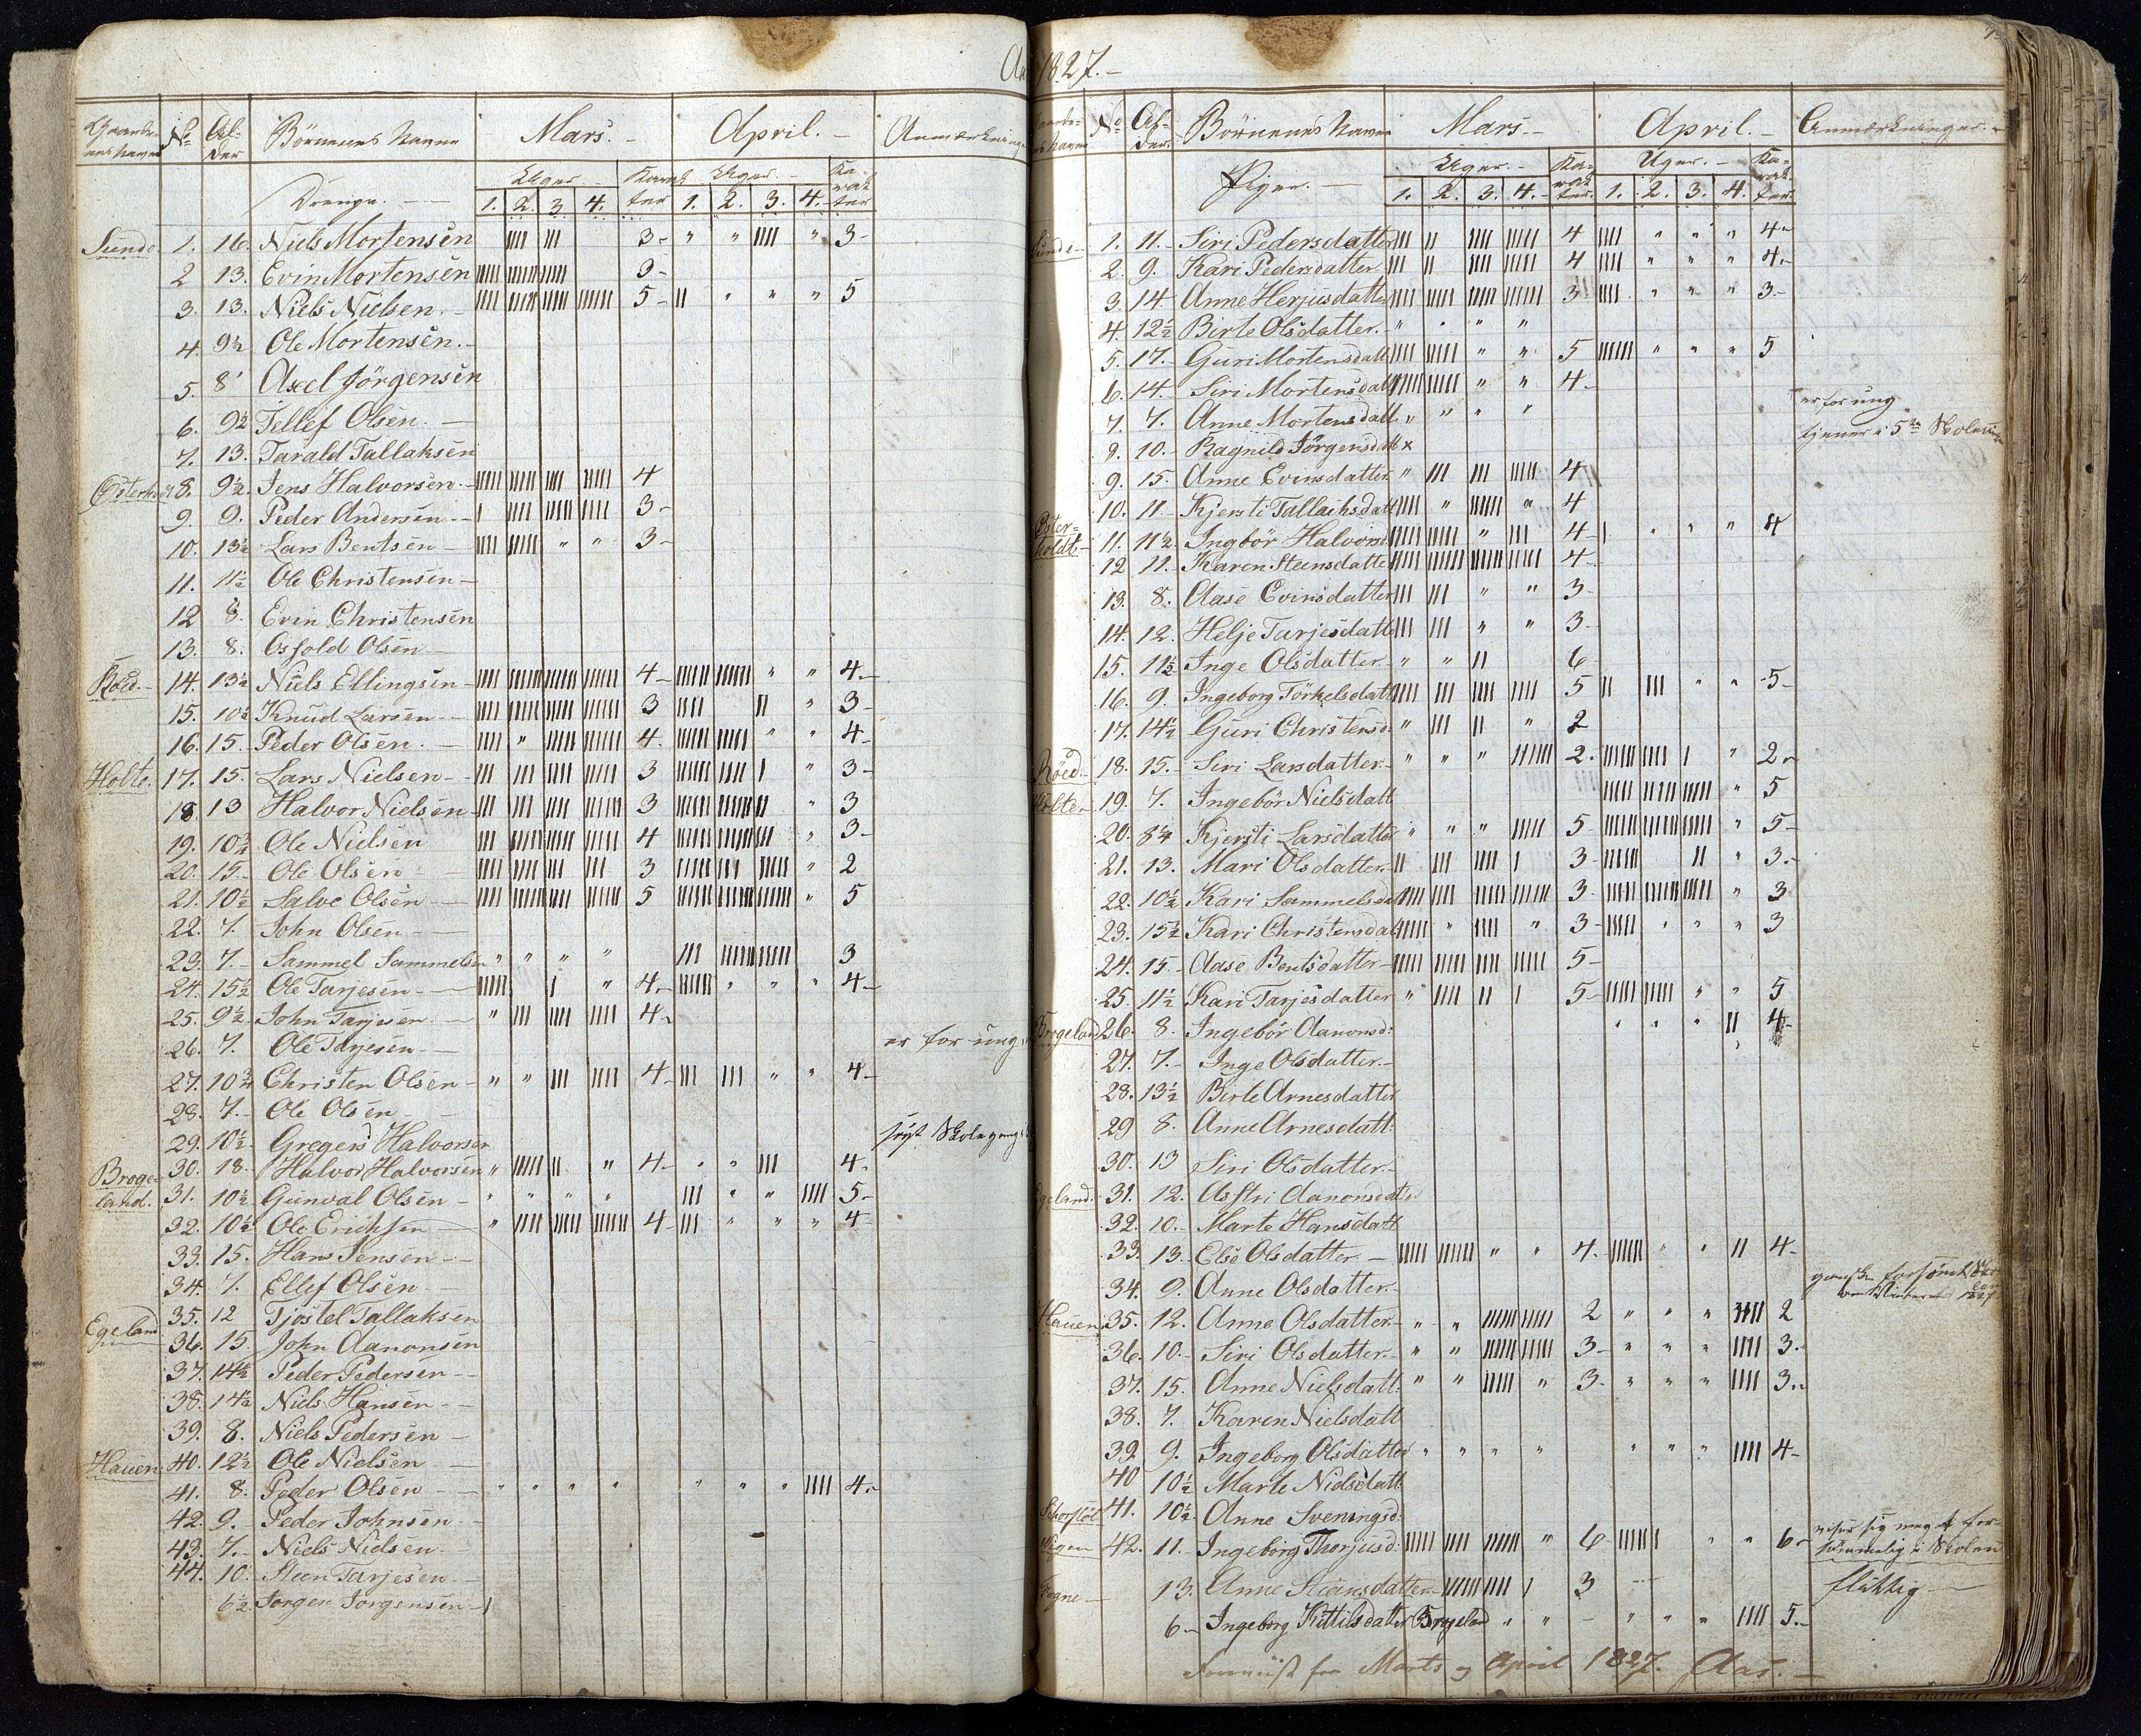 1827.-
Gaardenes Navne No Alder Börnenes Navne Mars. April. Anmærkninger
Drenge. Uger. Karakter Uger. Karakter
1. 2. 3. 4. 1. 2. 3. 4.
Sunde 1. 16. Niels Mortensen 3- " " " 3-
2 13. Evin Mortensen 3-
3. 13. Niels Nielsen. 5- " " " 5
4. 9½ Ole Mortensen.
5. 8 Axel Jörgensen
6. 9½ Tellef Olsen.
7. 13. Tarald Tallaksen
8. 9½ Jens Halvorsen. 4
9. 9. Peder Andersen 3-
10. 13½ Lars Bentsen " " 3-
11. 11½ Ole Christensen
12 8. Evin Christensen
13. 8. Osfold Olsen
Röed. 14. 13½ Niels Ellingsen 4- " " 4-
15. 10½ Knud Larsen 3 " 3-
16. 15. Peder Olsen. " 4. " " 4-
Holte. 17. 15. Lars Nielsen 3 " 3-
18. 13 Halvor Nielsen 3 " 3
19. 10¾ Ole Nielsen 4 " 3-
20. 15 Ole Olsen 3 " 2
21. 10½ Salve Olsen 5 " 5
22. 7. John Olsen
23. 7. Sammel Sammelsen " " " " 3
24. 15½ Ole Tarjesen " 4. " " " 4-
25. 9½ John Tarjesen " 4-
26. 7. Ole Tarjesen er for ung
27. 10¾ Christen Olsen " " 4- " " 4-
28. 7. Ole Olsen
29. 10½ Gregers Halvorsen
Brogeland. 30. 18. Halvor Halvorsen " " 4- " " 4-
31. 10½ Gunval Olsen " " " " " " 5-
32. 10½ Ole Erichsen " 4- " " " 4-
33. 15. Hans Jensen
34. 7. Ellef Olsen
Egeland 35. 12 Tjöstel Tallaksen
36. 15 John Aanonsen
37. 14½ Peder Pedersen
38. 14½ Niels Hansen
39. 8. Niels Pedersen
Hauen 40. 12½ Ole Nielsen
41. 8. Peder Olsen " " " " " " " 4-
42. 9. Peder Johnsen
43. 7. Niels Nielsen
44. 10. Steen Tarjesen.
6½ Jörgen Jörgensen
No Alder. Börnenes Navne Mars. April. Anmærkninger.
Piger. Uger. Karakter. Uger. Karakter.
1. 2. 3. 4. 1. 2. 3. 4.
Sunde 1. 11. Siri Pedersdatter 4 " " " 4-
2. 9. Kari Pedersdatter 4 " " " 4-
3. 14 Anne Herjusdatter 3 " " " 3-
4. 12½ Birte Olsdatter. " " " "
5. 17. Guri Mortensdatt " " 5 " " " 5
6. 14. Siri Mortensdatt " " 4-
7. 7. Anne Mortensdatt " " " " er for ung
8. 10. Ragnild Jörgensdatt x tjener i 5te
9. 15. Anne Evinsdatter " 4
10. 11. Kjersti Tallachsdatt " " 4
Osterholdt 11. 11½ Ingbör Halvorsd " 4 " " " 4
12 11. Karen Steensdatter 4
13. 8. Aase Evinsdatter " " 3-
14. 12. Helje Tarjesdatt " " 3-
15. 11½ Inge Olsdatter " " 6
16. 9. Ingeborg Törkelsdatt 5 " " 5-
17. 14½ Guri Christensd: " " 2
Röed 18. 15. Siri Larsdatter " " " 2. " 2-
Holte 19. 7. Ingebör Nielsdatt " 5
20. 8¼ Kjersti Larsdatter " " " 5- " 5-
21. 13. Mari Olsdatter 3- " 3.
22. 10½ Kari Sammelsdatt 3. " 3
23. 15½ Kari Christensdatt " " 3- " " " 3
24. 15. Aase Bentsdatter 5-
25. 11½ Kari Tarjesdatter " 5- " " 5
Brogeland 26. 8. Ingebör Aanonsd: " " " 4-
27. 7. Inge Olsdatter.
28. 13½ Berte Arnesdatter
29 8. Anne Arnesdatt:
30. 13 Siri Olsdatter.
Egeland. 31. 12. Asstri Aanonsdatter
32. 10. Marte Hansdatt
33. 13. Else Olsdatter " " 4. " " 4-
34. 9. Anne Olsdatter.
Hauen 35. 12. Anne Olsdatter " " 2 " " " 2
36. 10. Siri Olsdatter " " 3- " " " 3.
37. 15. Anne Nielsdatt: " " " 3. " " " 3.
38. 7. Karen Nielsdatt
39. 9. Ingeborg Olsdatter " " " " " " " 4-
40 10½ Marte Nielsdatt
41. 10½ Anne Sveningsd:
42. 11. Ingeborg Thorjusd: " 6 " " 6- viser sig meget forsömmelig i Skolen
13. Anne Steansdatter 3 flittig
6 Ingeborg Kittilsdatter Brogeland " " " " " 5.-
for Marts og April 1827. Aas.